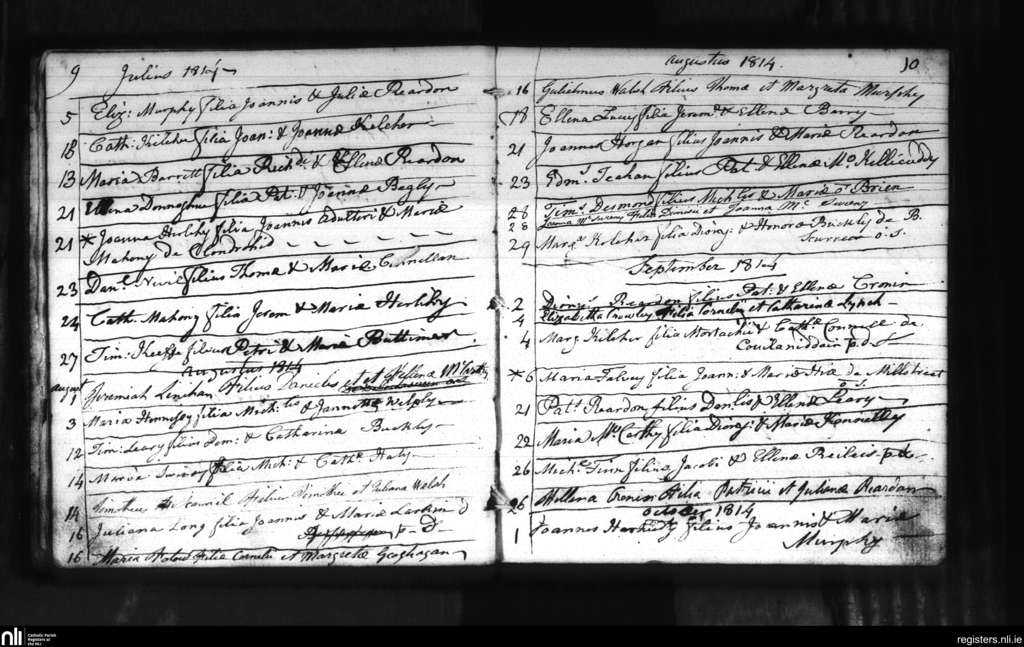 9 Julius 1814
5 Eliz: Murphy filia Joannis & Juliæ Reardon
18 Cath: Kelcher filia Joan: & Joannæ Kelcher
13 Maria Barrett filia Rich: & Ellenæ Reardon
21 Ellena Donoghue filia Pat: & Joannæ Begly
21 * Joanna Herlihy filia Joannis & Mariæ
Mahony de
23 Danl. filius Thomæ & Mariæ
24 Cath: Mahony filia Jerem & Mariæ Herlihy
27 Tim: Keeffe filius Petri & Mariæ Buttimer
Augustus 1814
August 1 Jeremiah Linehan filius Danielis et Hellena
3 Maria Hennessy filia Mich: & Joannæ Welply
12 Tim: Leary filius Dem: & Catharina Buckly
14 Maria filia Mich: & Cath: Haly
14 Timotheus filius Timothei et Juliana Walsh
16 Juliana Long filia Joannis & Mariæ Larkin
p. d
16 Maria filia Cornelii et Margretæ Geoghagan
Augustus 1814. 10
16 Gulielmus Walsh filius Thomæ et Margreta Murphy
18 Ellena Lucey filia Jerem: & Ellenæ Barry
21 Joannes Horgan filius Joannis & Mariæ Reardon
23 Edm: Teahan filius Pat: & Ellenæ Mc. Killicuddy
28 Tim: Desmond filius Mich: & Mariæ o'Brien
28 Mc. Sweeny filia Dionisii et Joanna Mc. Sweeny
29 Marg: Kelcher filia Diony: & Honora Buckly de B.
o. s.
September 1814
2 Dionys: Reardon filius Pat: & Ellenæ Cronin
4 Elizabetha Crowley filia Cornelii et Catharina Lynch
4 Marg Kelcher filia Mortachii & Cath: de
p. d
* 6 Maria Falvey filia Joann: & Mariæ de Millstreet
o. s.
21 Pat: Reardon filius Don: & Ellenæ Leary
22 Maria Mc. Carthy filia Diony: & Mariæ
26 Mich: filius Jacobi & Ellenæ
26 Hellena Cronin filia Patricii et Julianæ Reardan
October 1814
1 Joannes filius Joannis & Mariæ
Murphy
nli Catholic Parish Registers at the NLI
registers.nli.ie